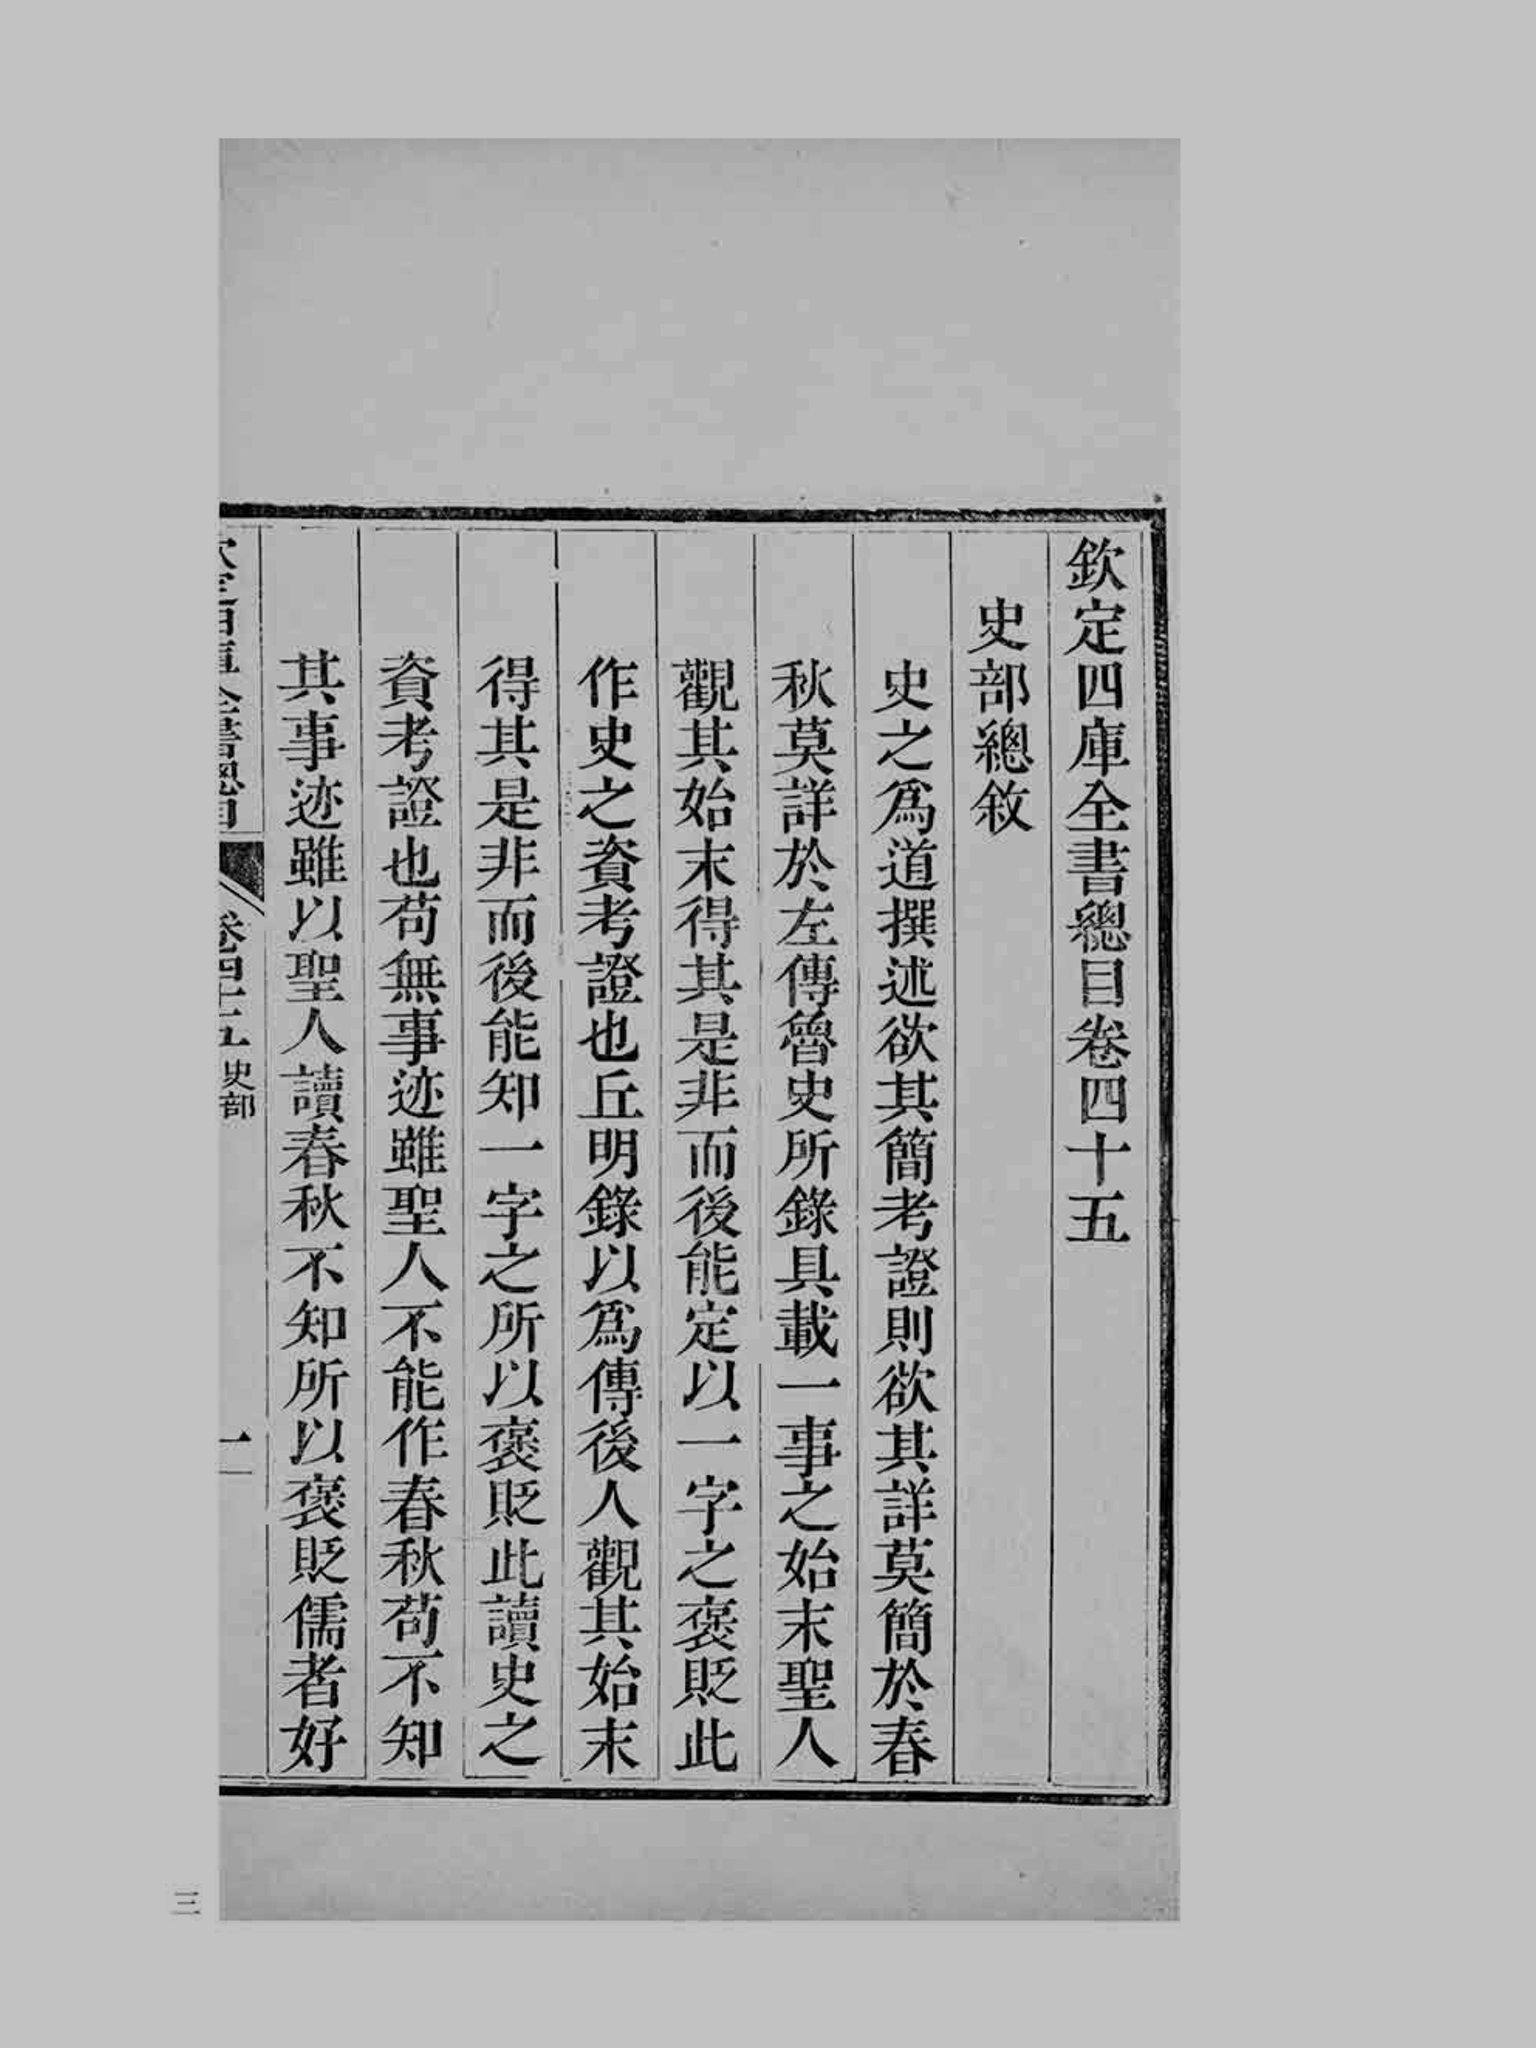 欽定四庫全書總目卷四十五
史部總敘
史之爲道撰述欲其簡考證則欲其詳莫簡於春
秋莫詳於左傳魯史所錄具載一事之始末聖人
觀其始末得其是非而後能定以一字之褒貶此
作史之資考證也丘明錄以爲傳後人觀其始末
得其是非而後能知一字之所以褒貶此讀史之
資考證也苟無事迹雖聖人不能作春秋苟不知
其事迹雖以聖人讀春秋不知所以褒貶儒者好
欽定四庫全書總目 卷四十五 史部 一
三